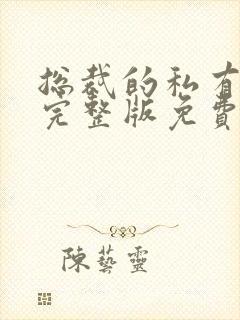 总裁的私有
完整版免費
陳藝靈